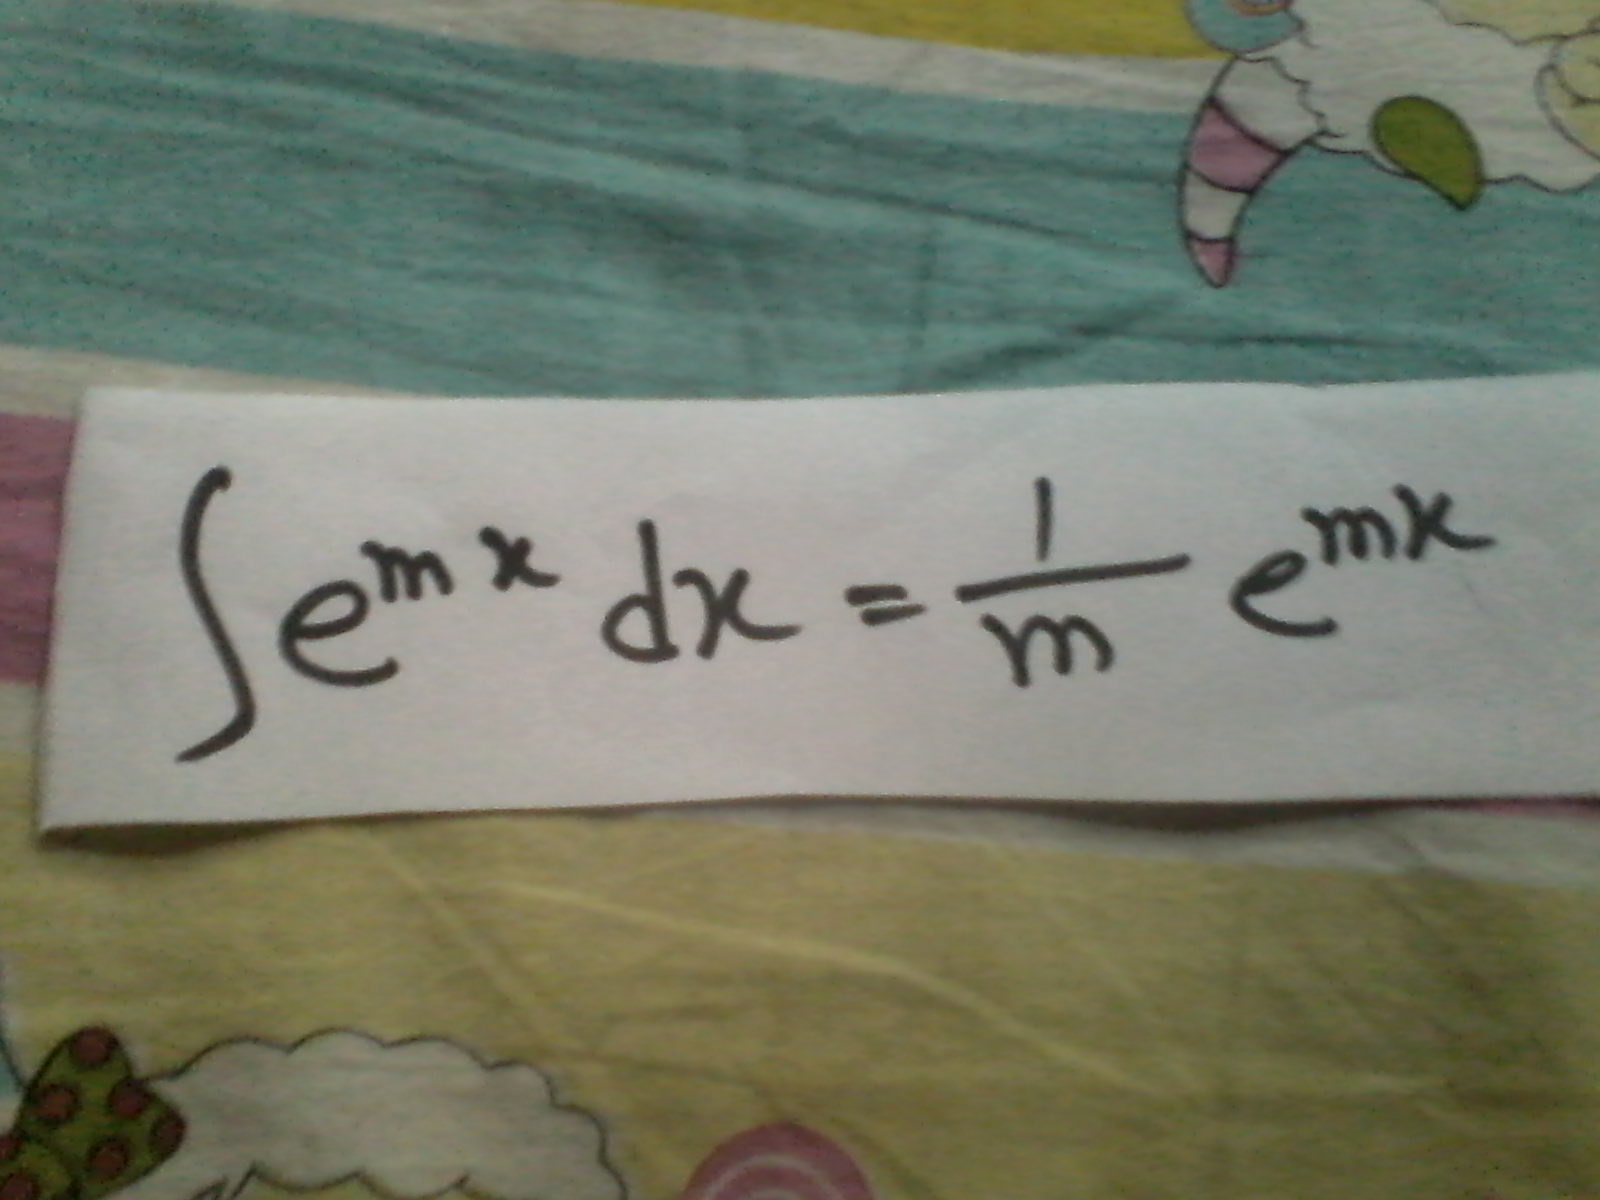 ∫e^{mx} dx = \frac{1}{m} e^{mx}